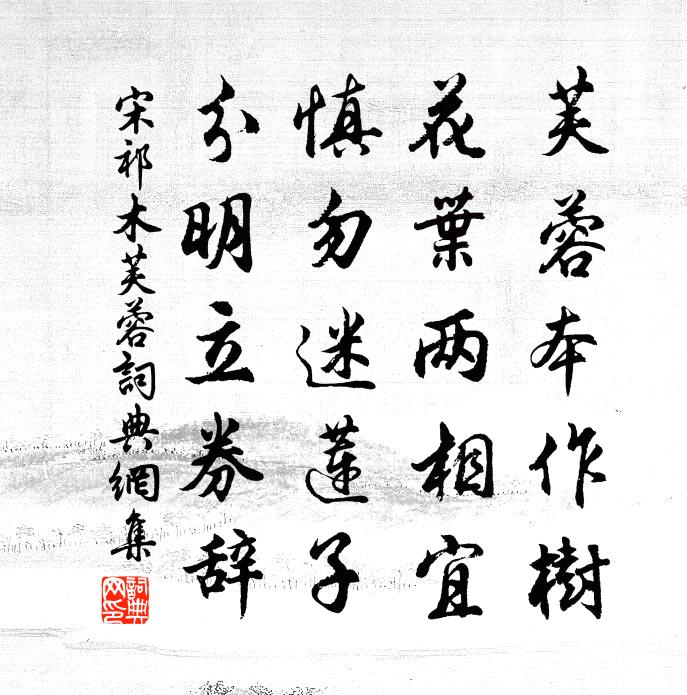 芙蓉本作樹
花葉两相宜
慎勿迷蓮子
分明立券辞
宋祁木芙蓉詞典網集
詞典网印